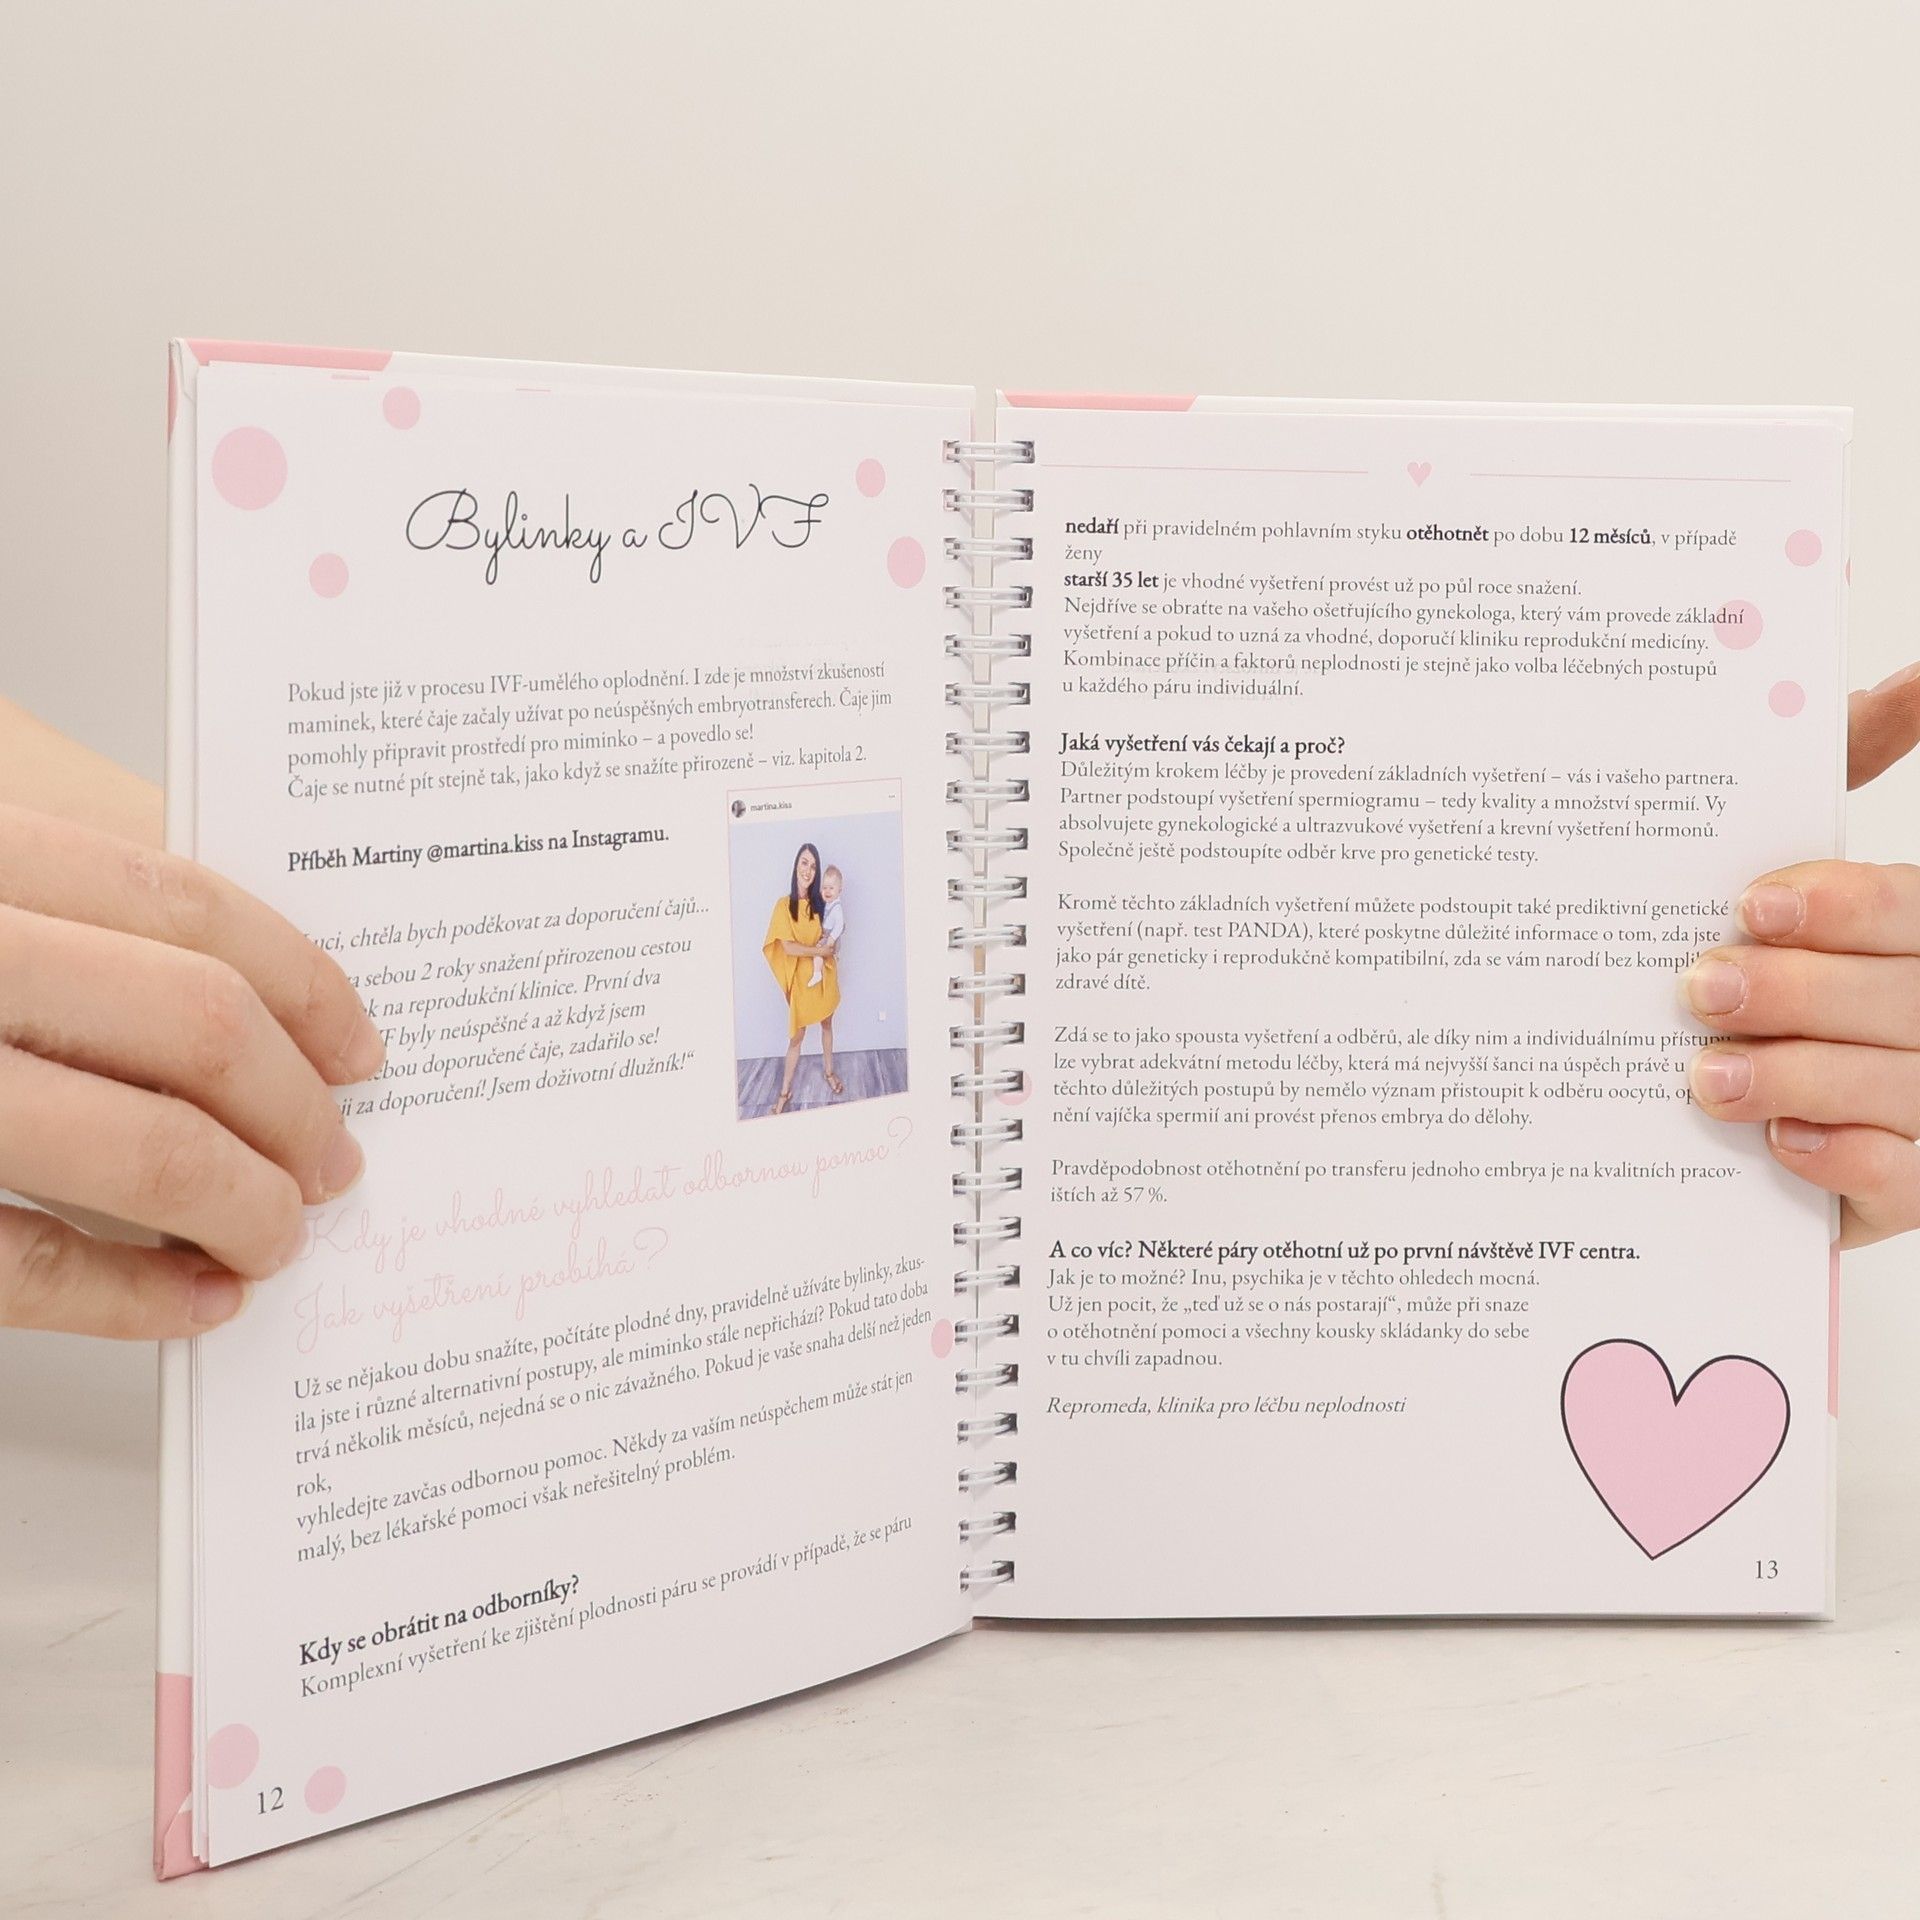 Bylinky a IVF
Pokud jste již v procesu IVF-umělého oplodnění. I zde je množství zkušeností
maminek, které čaje začaly užívat po neúspěšných embryotransferech. Čaje jim
pomohly připravit prostředí pro miminko – a povedlo se!
Čaje se nutné pít stejně tak, jako když se snažíte přirozeně – viz. kapitola 2.
martina.kiss
Příběh Martiny @martina.kiss na Instagramu.
chtěla bych poděkovat za doporučení čajů...
sebou 2 roky snažení přirozenou cestou
na reprodukční klinice. První dva
byly neúspěšné a až když jsem
doporučené čaje, zadařilo se!
za doporučení! Jsem doživotní dlužník!“
Kdy je vhodné vyhledat odbornou pomoc?
Jak vyšetření probíhá?
Už se nějakou dobu snažíte, počítáte plodné dny, pravidelně užíváte bylinky, zkus-
ila jste i různé alternativní postupy, ale miminko stále nepřichází? Pokud tato doba
trvá několik měsíců, nejedná se o nic závažného. Pokud je vaše snaha delší než jeden
rok,
vyhledejte zavčas odbornou pomoc. Někdy za vaším neúspěchem může stát jen
malý, bez lékařské pomoci však neřešitelný problém.
Kdy se obrátit na odborníky?
Komplexní vyšetření ke zjištění plodnosti páru se provádí v případě, že se páru
12
nedaří při pravidelném pohlavním styku otěhotnět po dobu 12 měsíců, v případě
ženy
starší 35 let je vhodné vyšetření provést už po půl roce snažení.
Nejdříve se obraťte na vašeho ošetřujícího gynekologa, který vám provede základní
vyšetření a pokud to uzná za vhodné, doporučí kliniku reprodukční medicíny.
Kombinace příčin a faktorů neplodnosti je stejně jako volba léčebných postupů
u každého páru individuální.
Jaká vyšetření vás čekají a proč?
Důležitým krokem léčby je provedení základních vyšetření – vás i vašeho partnera.
Partner podstoupí vyšetření spermiogramu – tedy kvality a množství spermií. Vy
absolvujete gynekologické a ultrazvukové vyšetření a krevní vyšetření hormonů.
Společně ještě podstoupíte odběr krve pro genetické testy.
Kromě těchto základních vyšetření můžete podstoupit také prediktivní genetické
vyšetření (např. test PANDA), které poskytne důležité informace o tom, zda jste
jako pár geneticky i reprodukčně kompatibilní, zda se vám narodí bez
zdravé dítě.
Zdá se to jako spousta vyšetření a odběrů, ale díky nim a individuálnímu přístupu
lze vybrat adekvátní metodu léčby, která má nejvyšší šanci na úspěch právě u
těchto důležitých postupů by nemělo význam přistoupit k odběru oocytů,
nění vajíčka spermií ani provést přenos embrya do dělohy.
Pravděpodobnost otěhotnění po transferu jednoho embrya je na kvalitních pracov-
ištích až 57 %.
A co víc? Některé páry otěhotní už po první návštěvě IVF centra.
Jak je to možné? Inu, psychika je v těchto ohledech mocná.
Už jen pocit, že „teď už se o nás postarají“, může při snaze
o otěhotnění pomoci a všechny kousky skládanky do sebe
v tu chvíli zapadnou.
Repromeda, klinika pro léčbu neplodnosti
13